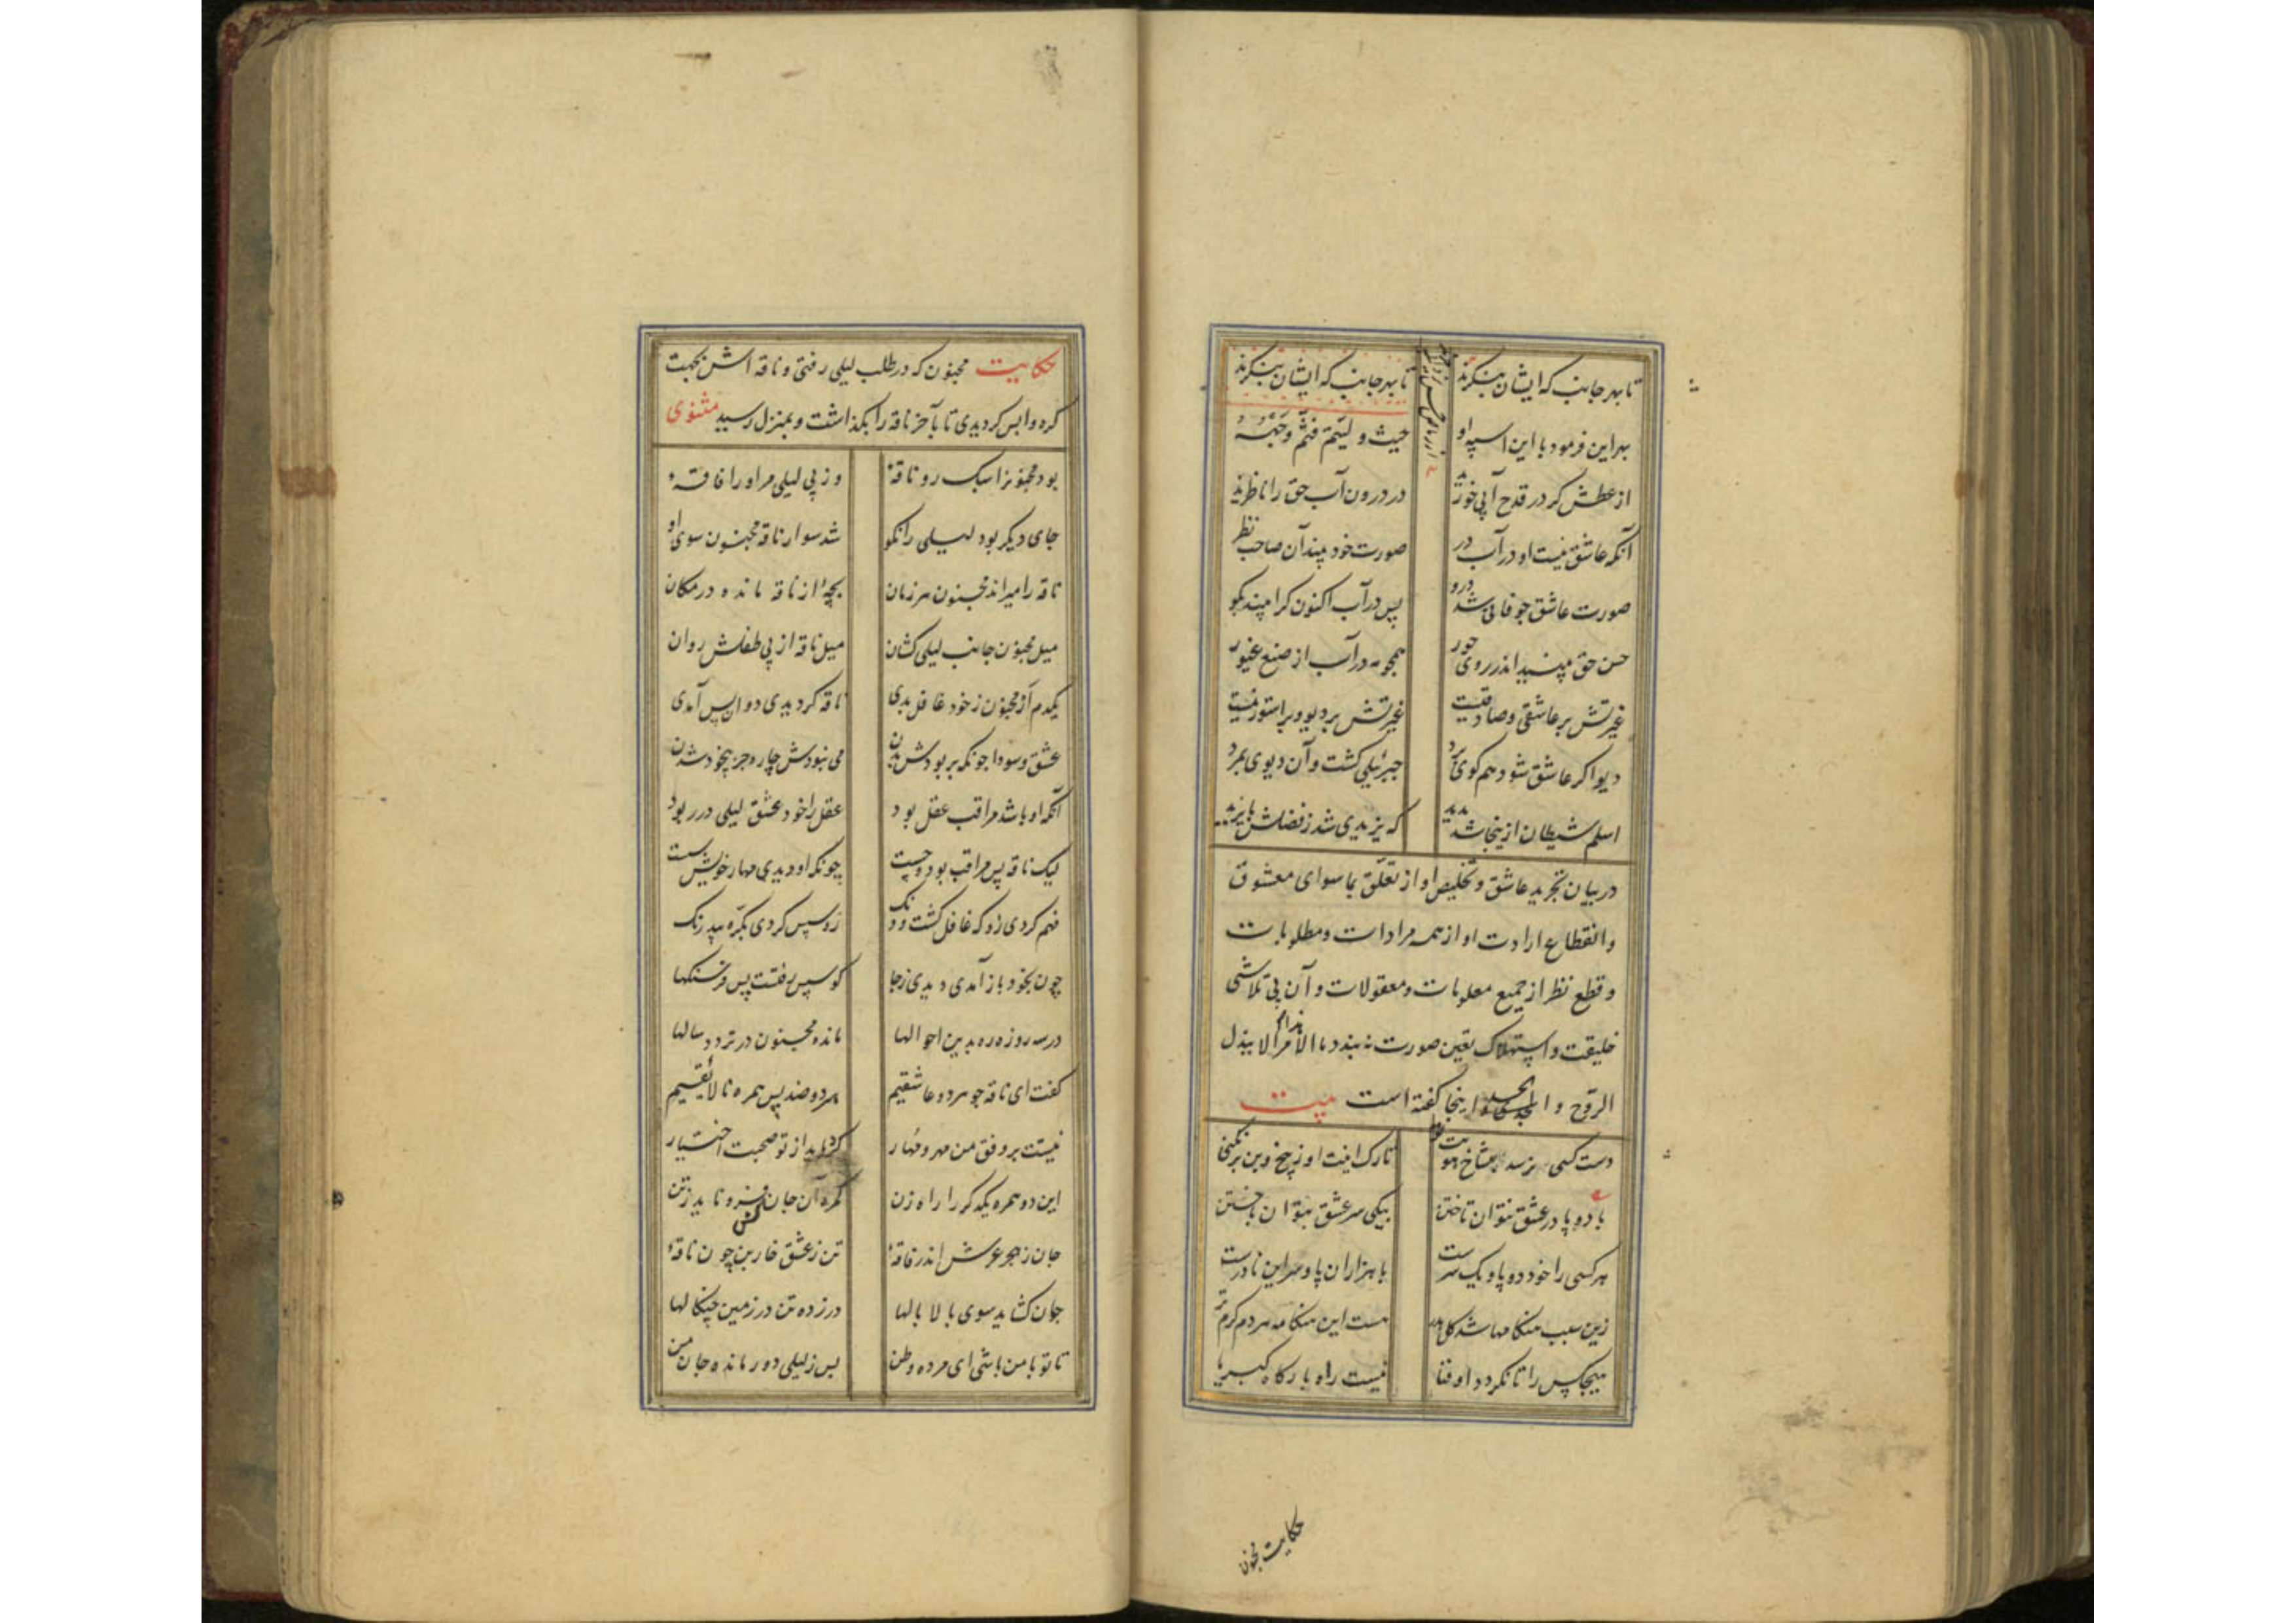 تا بهر جانب که ایشان بنگرند تا بهر جانب که ایشان بنگرند
بهر این فرمود با این اسپه او حیث و لیتم فثم وجهه
از عطش کر در قدح آبی خورند در درون آب حق را ناظرند
آنکه عاشق نیست او در آب در صورت خود بیند آن صاحب نظر
صورت عاشق چو فانی شد درو پس در آب اکنون کرا بیند بکو
حسن حق بینید اندر روی حور همچو مه در آب از صنع غیور
غیرتش بر عاشقی و صادقیست غیرتش بر دیو و بر استور نیست
دیو اکر عاشق شود هم کوی برد جبرئیلی کشت و آن دیوی بمرد
اسلم شیطان از ینجا شد پدید که یزیدی شد ز فضلش بایزید
در بیان تجرید عاشق و تخلیص او از تعلق بما سوای معشوق
و انقطاع ارادت او از همه مرادات و مطلوبات
و قطع نظر از جمیع معلومات و معقولات و آن بی تلاشی
خلیقت و استهلاک تعین صورت نه بندد ما الامر الا ببذل
الروح و اینجا کفته است بیت
دست کسی بر نرسد بشاخ هویت تو تا رک انیت او ز بیخ و بن بر نکنی
با دو پا در عشق نتوان تاختن بیکی سر عشق نتوان باختن
هر کسی را خود دو پا و یک سرست با هزاران پا و سر این نادرست
زین سبب هنکامها شد کل هدر هست این هنکامه هر دم کرم تر
هیچکس را تا نکردد او فنا نیست راه بارکاه کبریا
حکایت مجنون
حکایت مجنون که در طلب لیلی رفتی و ناقه اش بمحبت
کره واپس کردیدی تا بآخر ناقه را بکذاشت و بمنزل رسید مثنوی
بود مجنونرا سبک رو ناقهٔ وز پی لیلی مر او را فاقهٔ
جای دیکر بود لیلی را نکو شد سوار ناقه مجنون سوی او
ناقه را میراند مجنون هر زمان بچهٔ از ناقه مانده در مکان
میل مجنون جانب لیلی کشان میل ناقه از پی طفلش روان
یکدم ار مجنون ز خود غافل بدی ناقه کردیدی دوان پس آمدی
عشق و سودا چونکه پر بودش بدن می نبودش چاره جز بیخود شدن
آنکه او باشد مراقب عقل بود عقل را خود عشق لیلی در ربود
لیک ناقه پس مراقب بود و چست چونکه او دیدی مهار خویش سست
فهم کردی زو که غافل کشت و دنک رو سپس کردی بکره بیدرنک
چون بخود باز آمدی دیدی ز جا کو سپس رفتست پس فرسنکها
در سه روزه ره بدین احوالها مانده مجنون در تردد سالها
کفت ای ناقه چو هر دو عاشقیم هر دو ضد پس همره نالایقیم
نیستت بر وفق من مهر و مهار کرد باید از تو صحبت اختیار
این دو همره یکدکر را راه زن کمره آن جان کش فرو ناید ز تن
جان ز هجر عرش اندر فاقهٔ تن ز عشق خاربن چون ناقهٔ
جان کشاید سوی بالا بالها در زده تن در زمین چنکالها
تا تو با من باشی ای مرده وطن بس ز لیلی دور مانده جان من